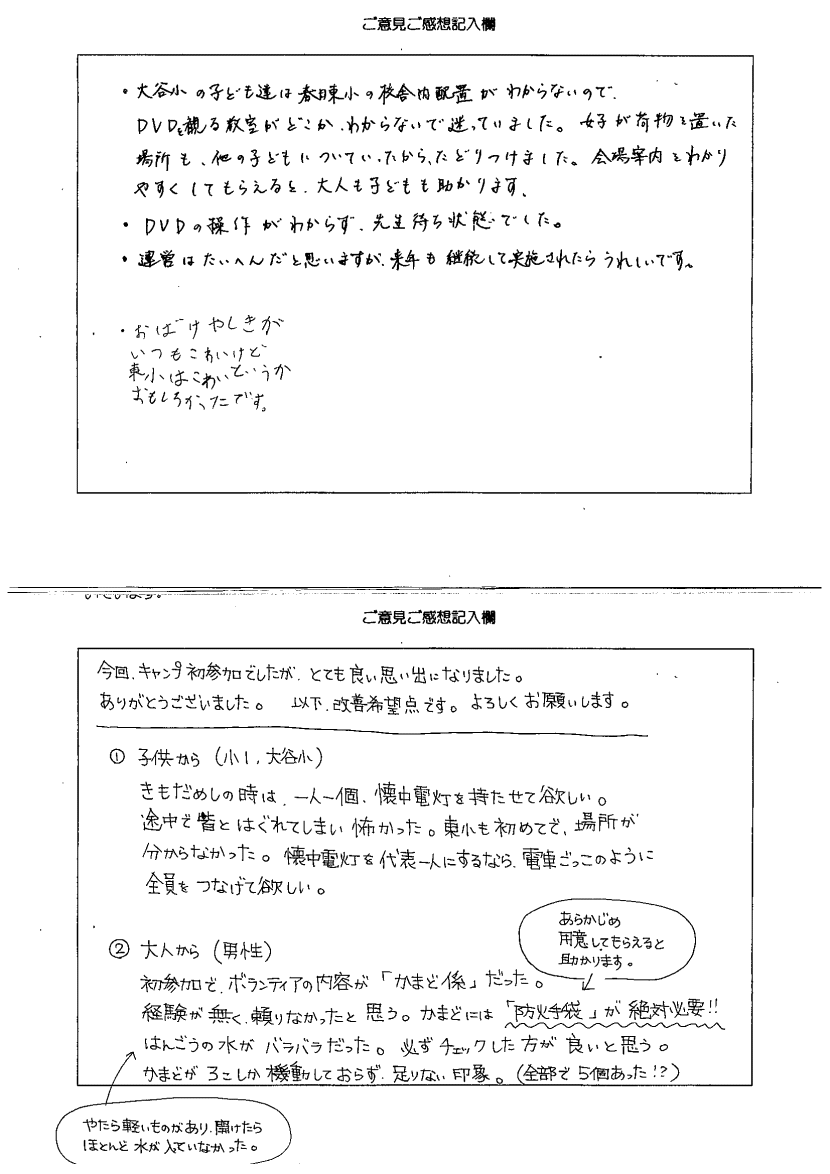 ご意見ご感想記入欄
・大谷小の子ども達は春日東小の校舎内配置がわからないので、
DVDを観る教室がどこか、わからないで迷っていました。女子が荷物を置いた
場所も、他の子どもについていったから、たどりつけました。会場案内をわかり
やすくしてもらえると、大人も子どもも助かります。
・DVDの操作がわからず、先生待ち状態でした。
・運営はたいへんだと思いますが、来年も継続して実施されたらうれしいです。
・おばけやしきが
いつもこわいけど
東小はこわいというか
おもしろかったです。
ご意見ご感想記入欄
今回、キャンプ初参加でしたが、とても良い思い出になりました。
ありがとうございました。 以下、改善希望点です。よろしくお願いします。
① 子供から（小1，大谷小）
きもだめしの時は、一人一個、懐中電灯を持たせて欲しい。
途中で皆とはぐれてしまい怖かった。東小も初めてで、場所が
分からなかった。懐中電灯を代表一人にするなら、電車ごっこのように
全員をつなげて欲しい。
② 大人から（男性）
あらかじめ
用意してもらえると
助かります。
初参加で、ボランティアの内容が「かまど係」だった。
経験が無く、頼りなかったと思う。かまどには「防火手袋」が絶対必要!!
はんごうの水がバラバラだった。必ずチェックした方が良いと思う。
かまどが3こしか機動しておらず、足りない印象。（全部で5個あった!?）
やたら軽いものがあり、開けたら
ほとんど水が入っていなかった。